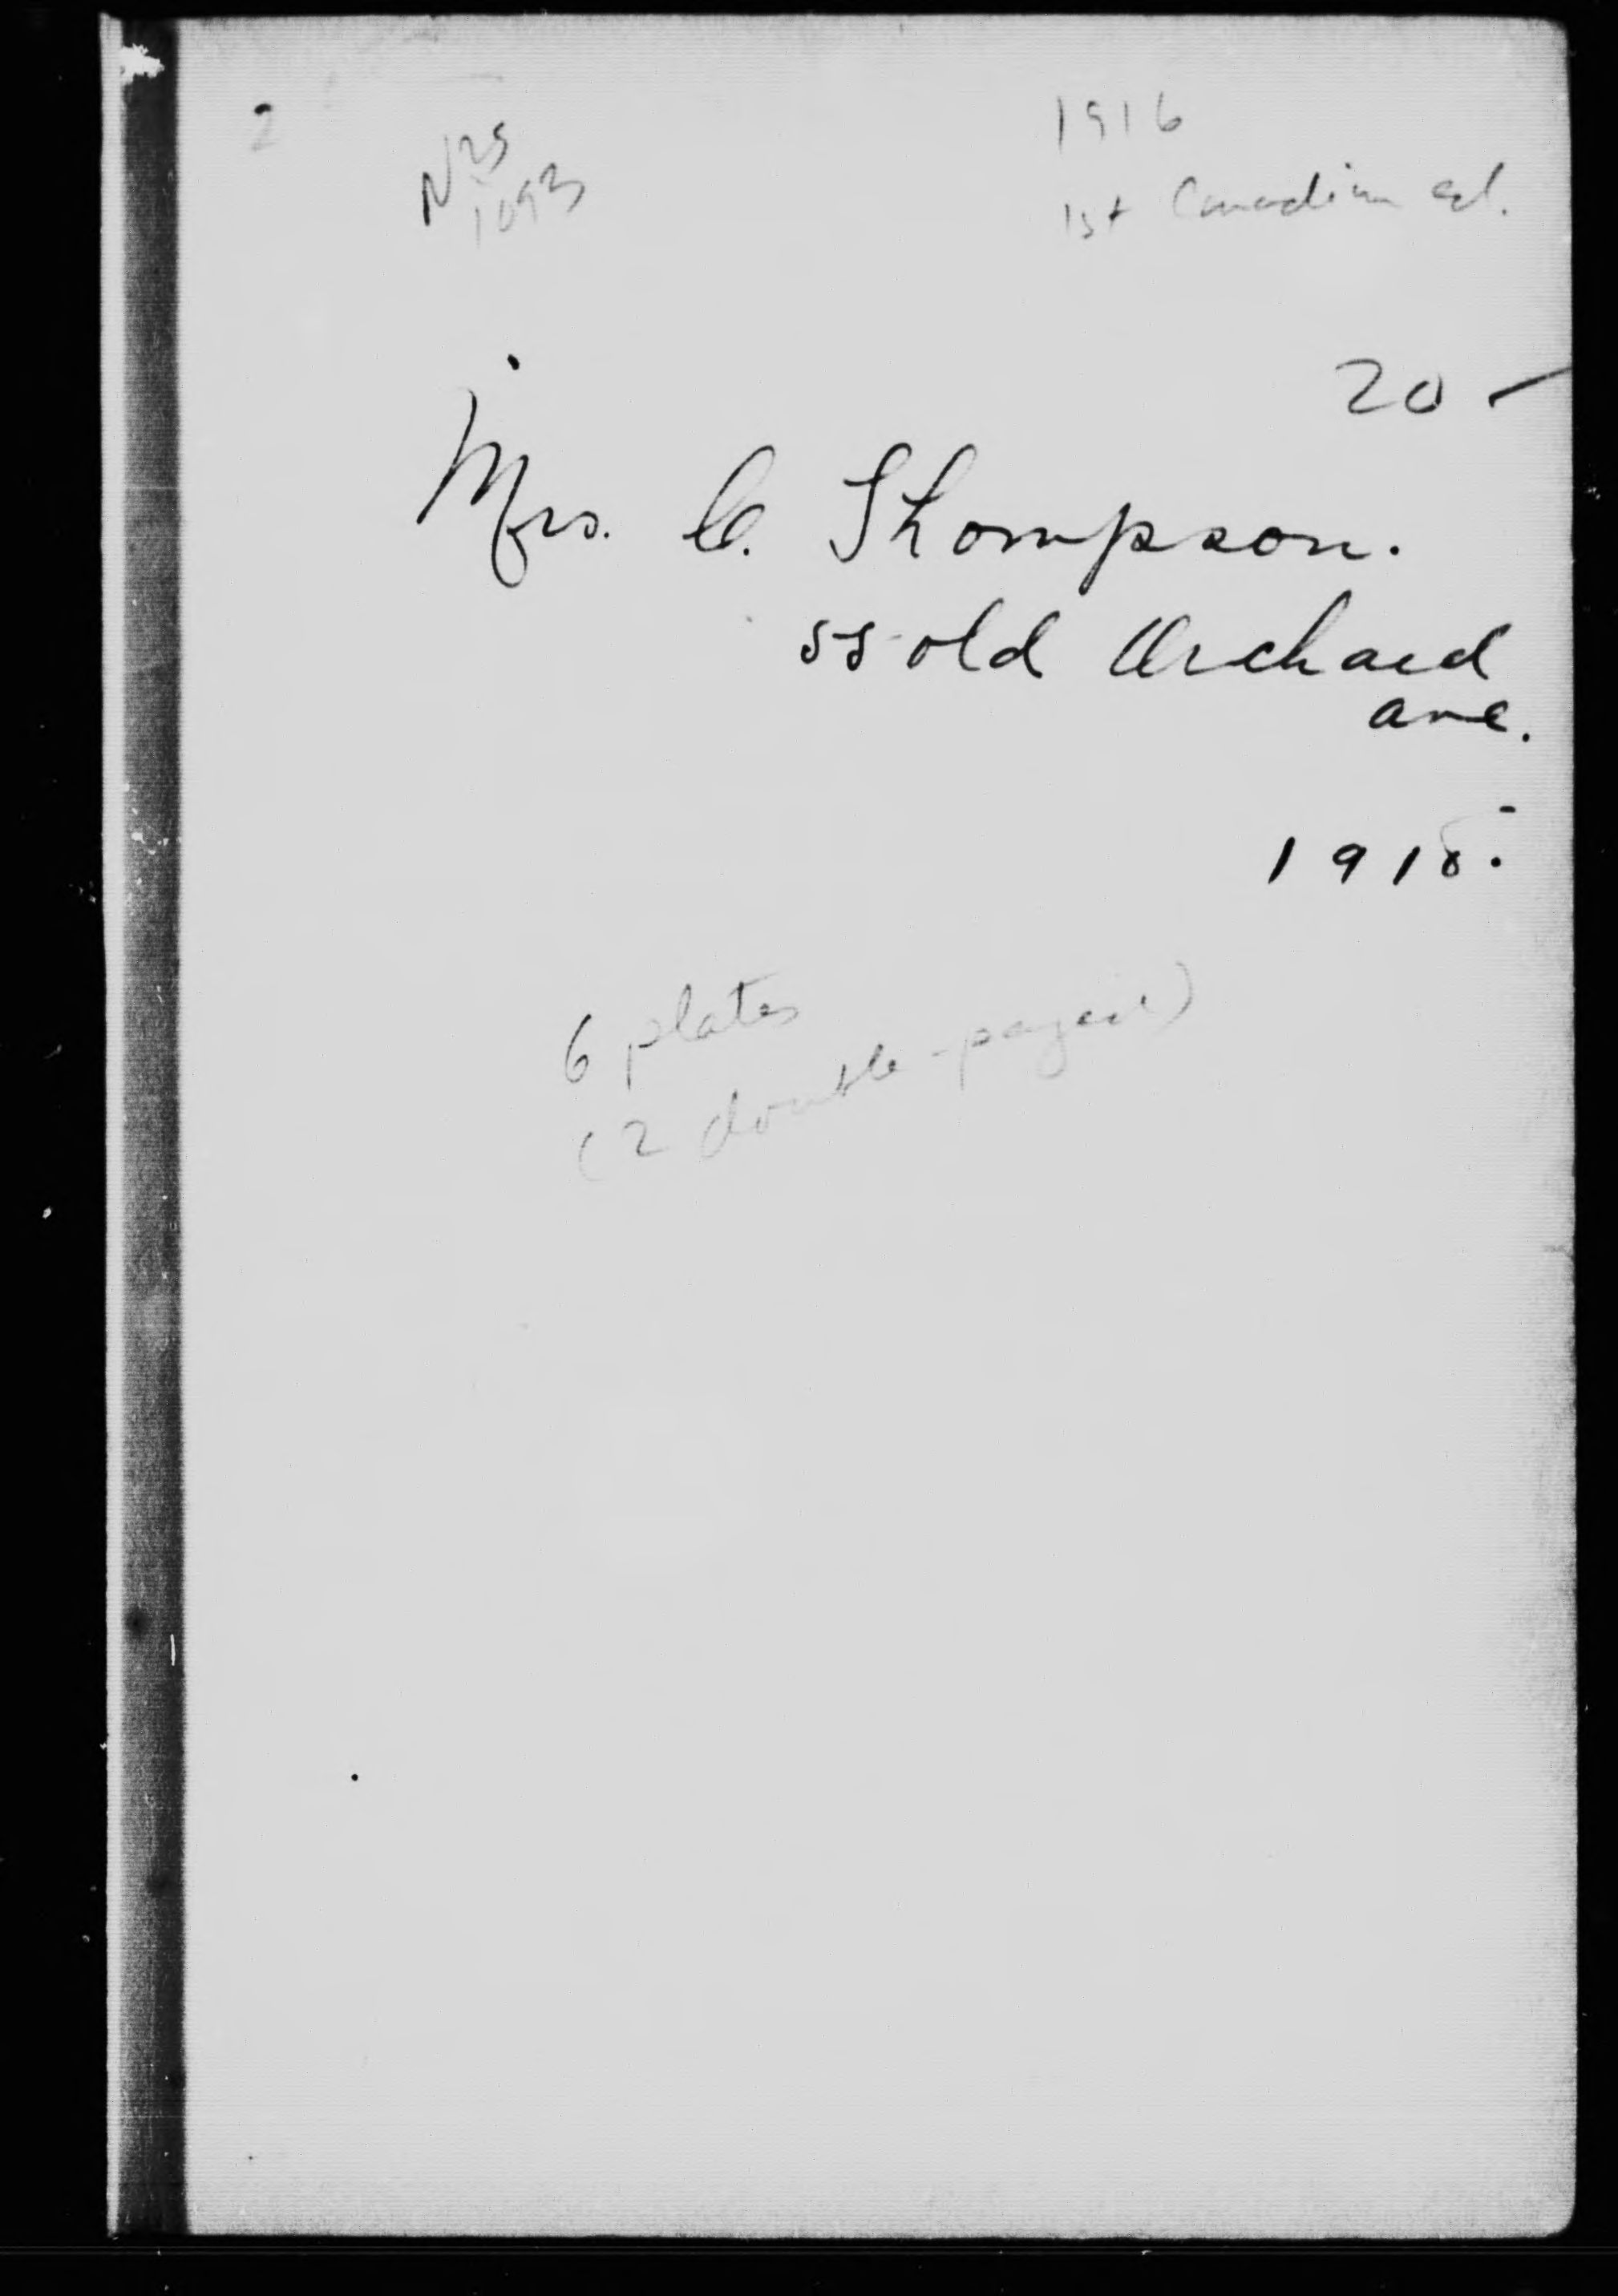 2
N25
1093
1916
1st Canadian ed.
20 -
Mrs. C. Thompson.
55 old Orchard
ave.
1918.
6 plates
(2 double-paged)